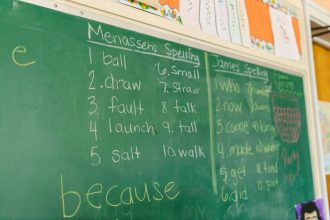 e
Menassens Spelling
1 ball 6. small
2. draw 7. straw
3. fault 8 talk
4 launch 9. tall
5. salt 10. walk
because
James Spelling
1 who
2. now
3 come long
4 made
5 get kind
6 did part